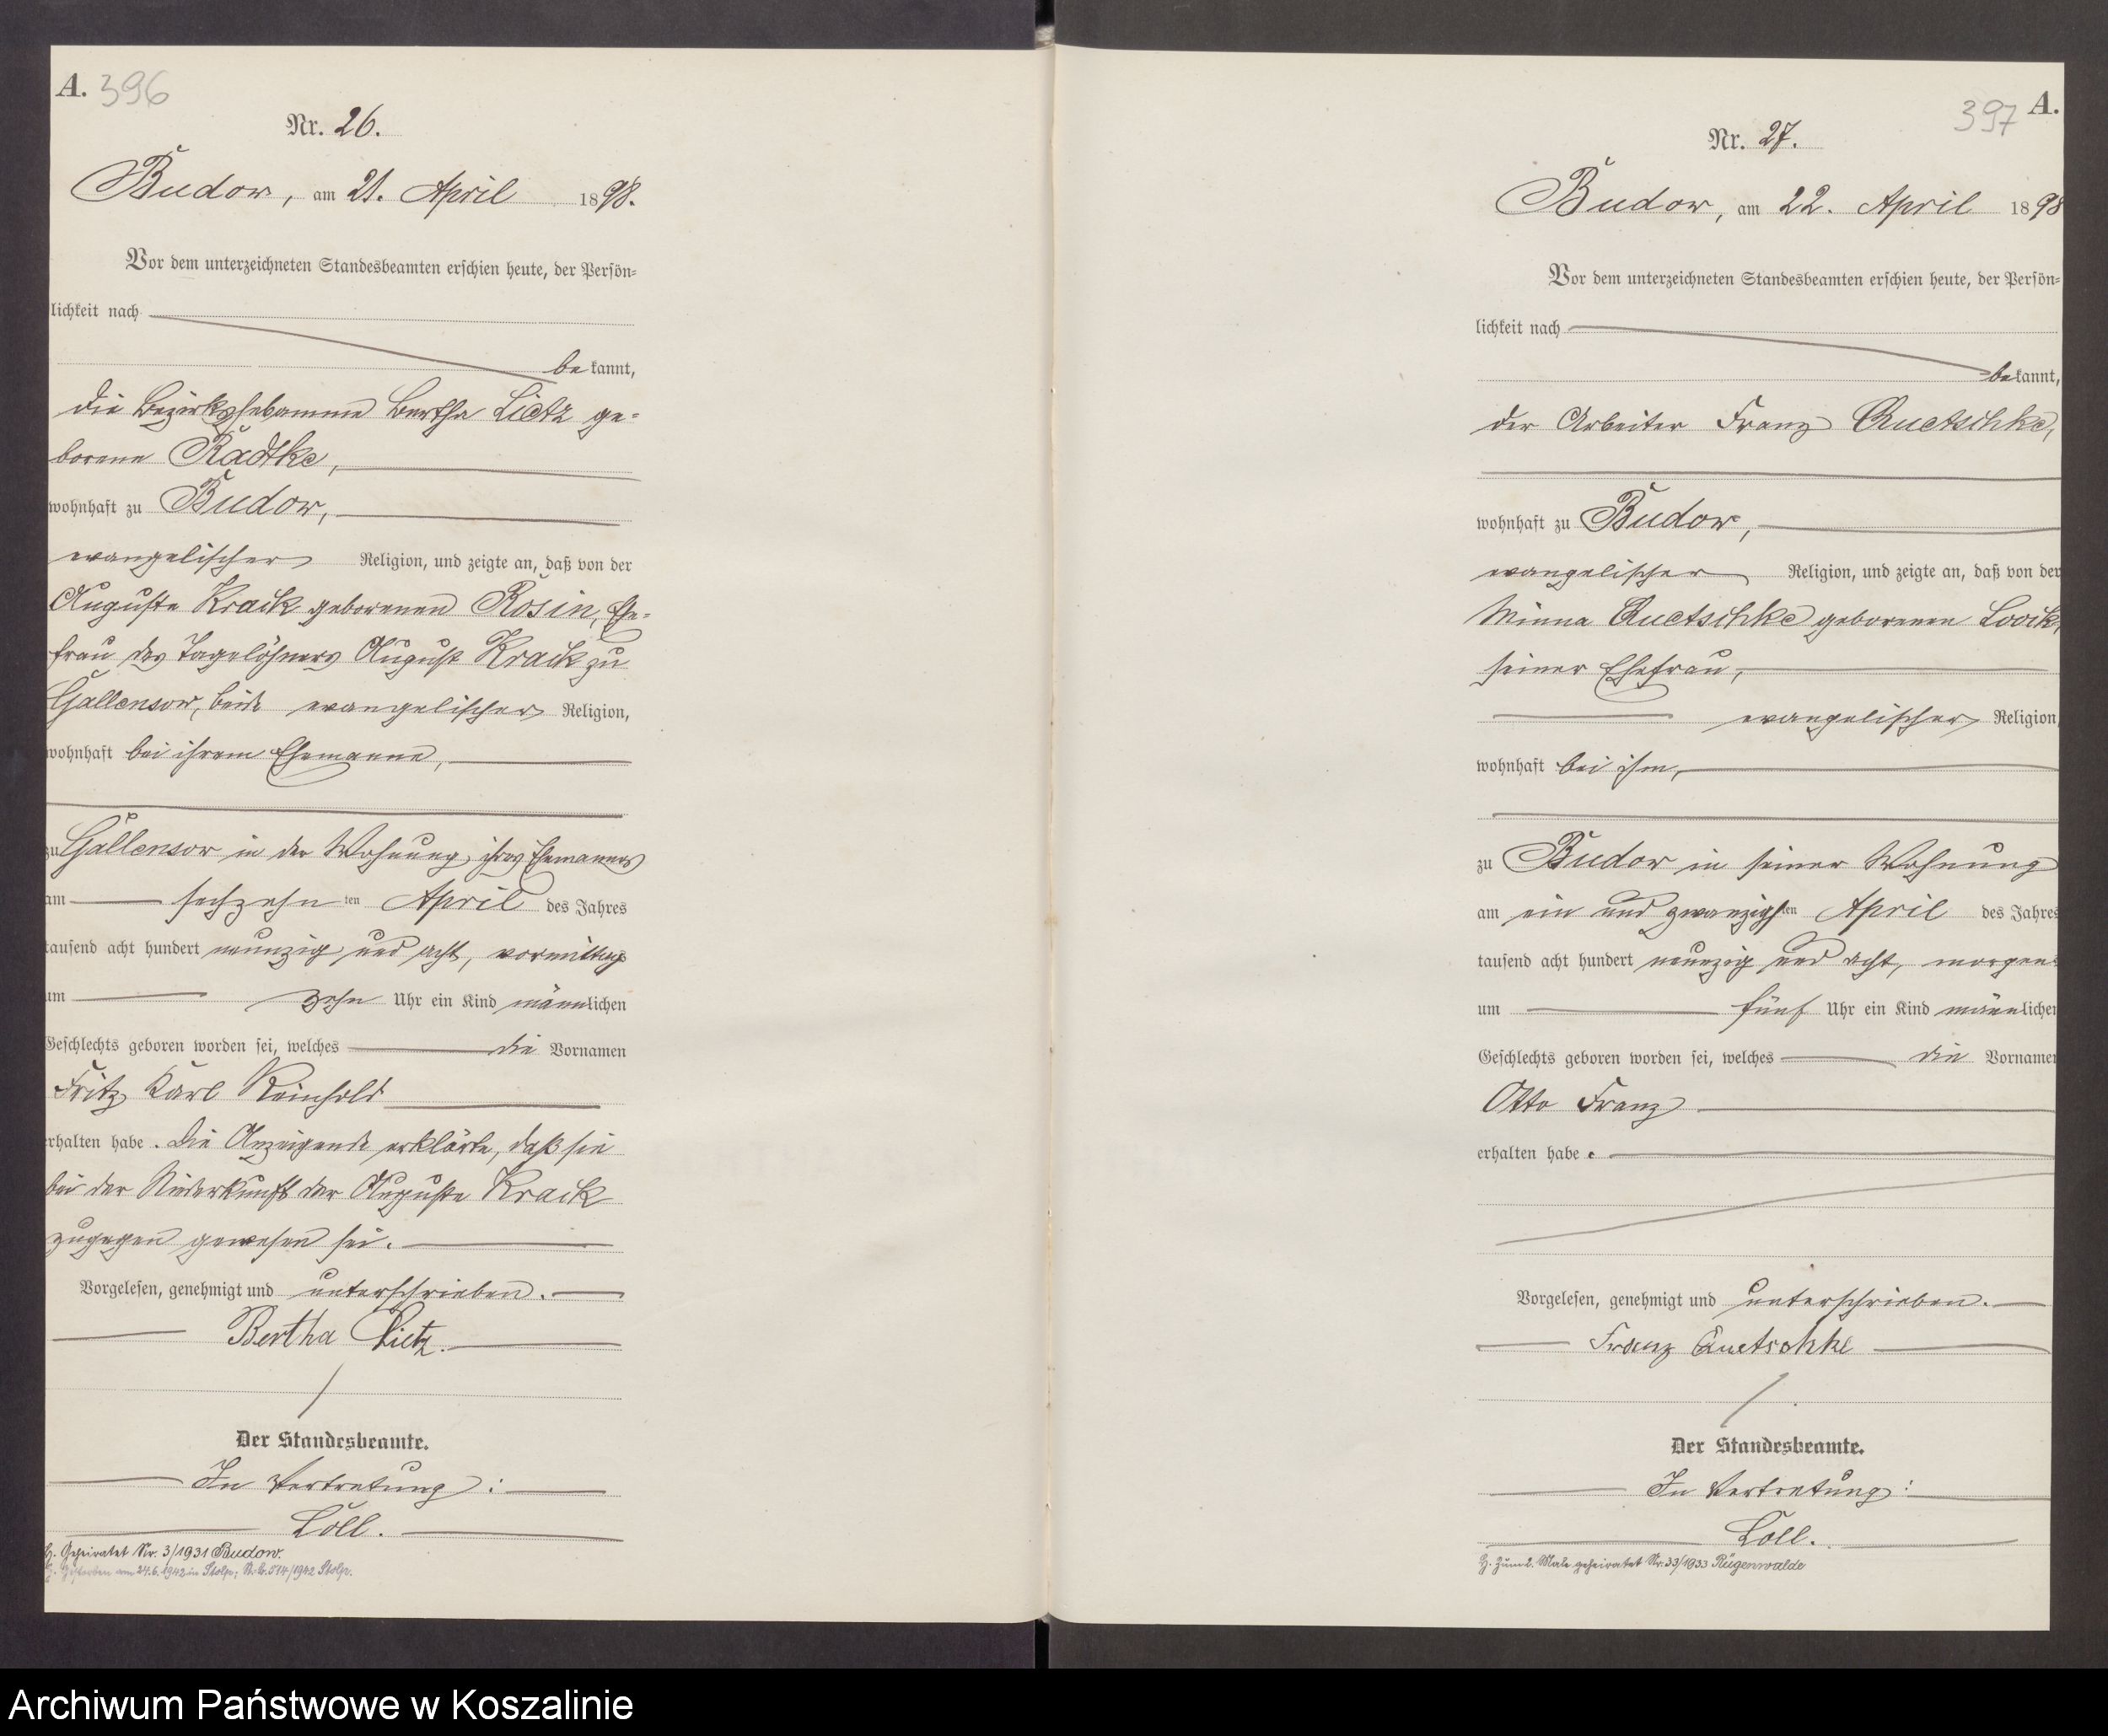 A. 396
Nr. 26.
Budow, am 21. April 1898.
Vor dem unterzeichneten Standesbeamten erschien heute, der Persön-
lichkeit nach
be kannt,
die Bezirkshebamme Bertha Lietz ge-
borene Radtke,
wohnhaft zu Budow,
evangelischer Religion, und zeigte an, daß von der
Auguste Krack geborenen Rosin, Ehe-
frau des Tagelöhners August Krack zu
Gallensow, beide evangelischer Religion,
wohnhaft bei ihrem Ehemanne,
zu Gallensow in der Wohnung ihres Ehemannes
am sechzehn ten April des Jahres
tausend acht hundert neunzig und acht, vormittags
um zehn Uhr ein Kind männlichen
Geschlechts geboren worden sei, welches die Vornamen
Fritz Karl Reinhold
erhalten habe. Die Anzeigende erklärte, daß sie
bei der Niederkunft der Auguste Krack
zugegen gewesen sei.
Vorgelesen, genehmigt und unterschrieben.
Bertha Lietz.
Der Standesbeamte.
In Vertretung:
Loll.
H. Geheiratet Nr. 3/1931 Budow.
Gestorben am 24.6.1942 in Stolp; St. B. 514/1942 Stolp.
397 A.
Nr. 27.
Budow, am 22. April 1898
Vor dem unterzeichneten Standesbeamten erschien heute, der Persön-
lichkeit nach
bekannt,
der Arbeiter Franz Quetschke,
wohnhaft zu Budow,
evangelischer Religion, und zeigte an, daß von der
Minna Quetschke geborenen Loock,
seiner Ehefrau,
evangelischer Religion,
wohnhaft bei ihm,
zu Budow in seiner Wohnung
am ein und zwanzigsten April des Jahres
tausend acht hundert neunzig und acht, morgens
um fünf Uhr ein Kind männlichen
Geschlechts geboren worden sei, welches die Vornamen
Otto Franz
erhalten habe.
Vorgelesen, genehmigt und unterschrieben.
Franz Quetschke
Der Standesbeamte.
In Vertretung:
Loll.
H. Zum 2. Male geheiratet Nr. 33/1933 Rügenwalde
Archiwum Państwowe w Koszalinie